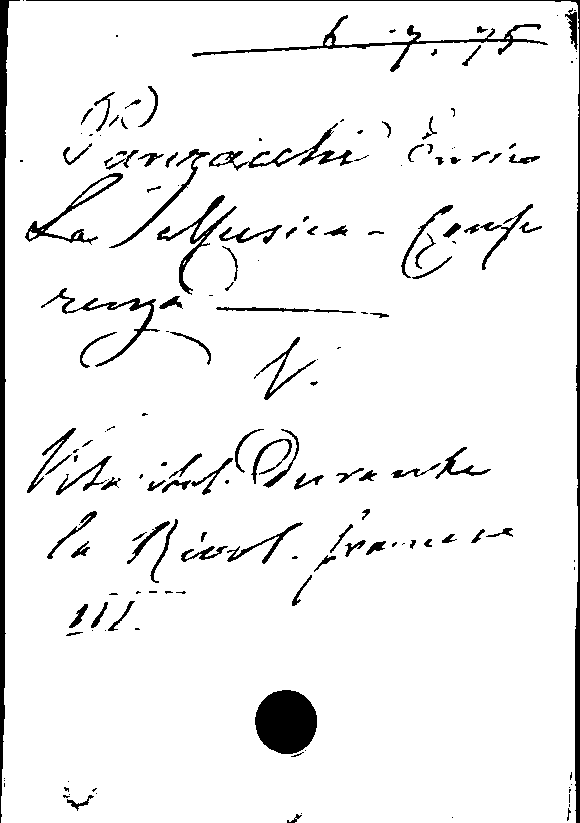 6. 7. 75
Panzacchi Enrico
La Musica - Confe
renza
V.
Vita ital. Durante
la Rivol. francese
III.